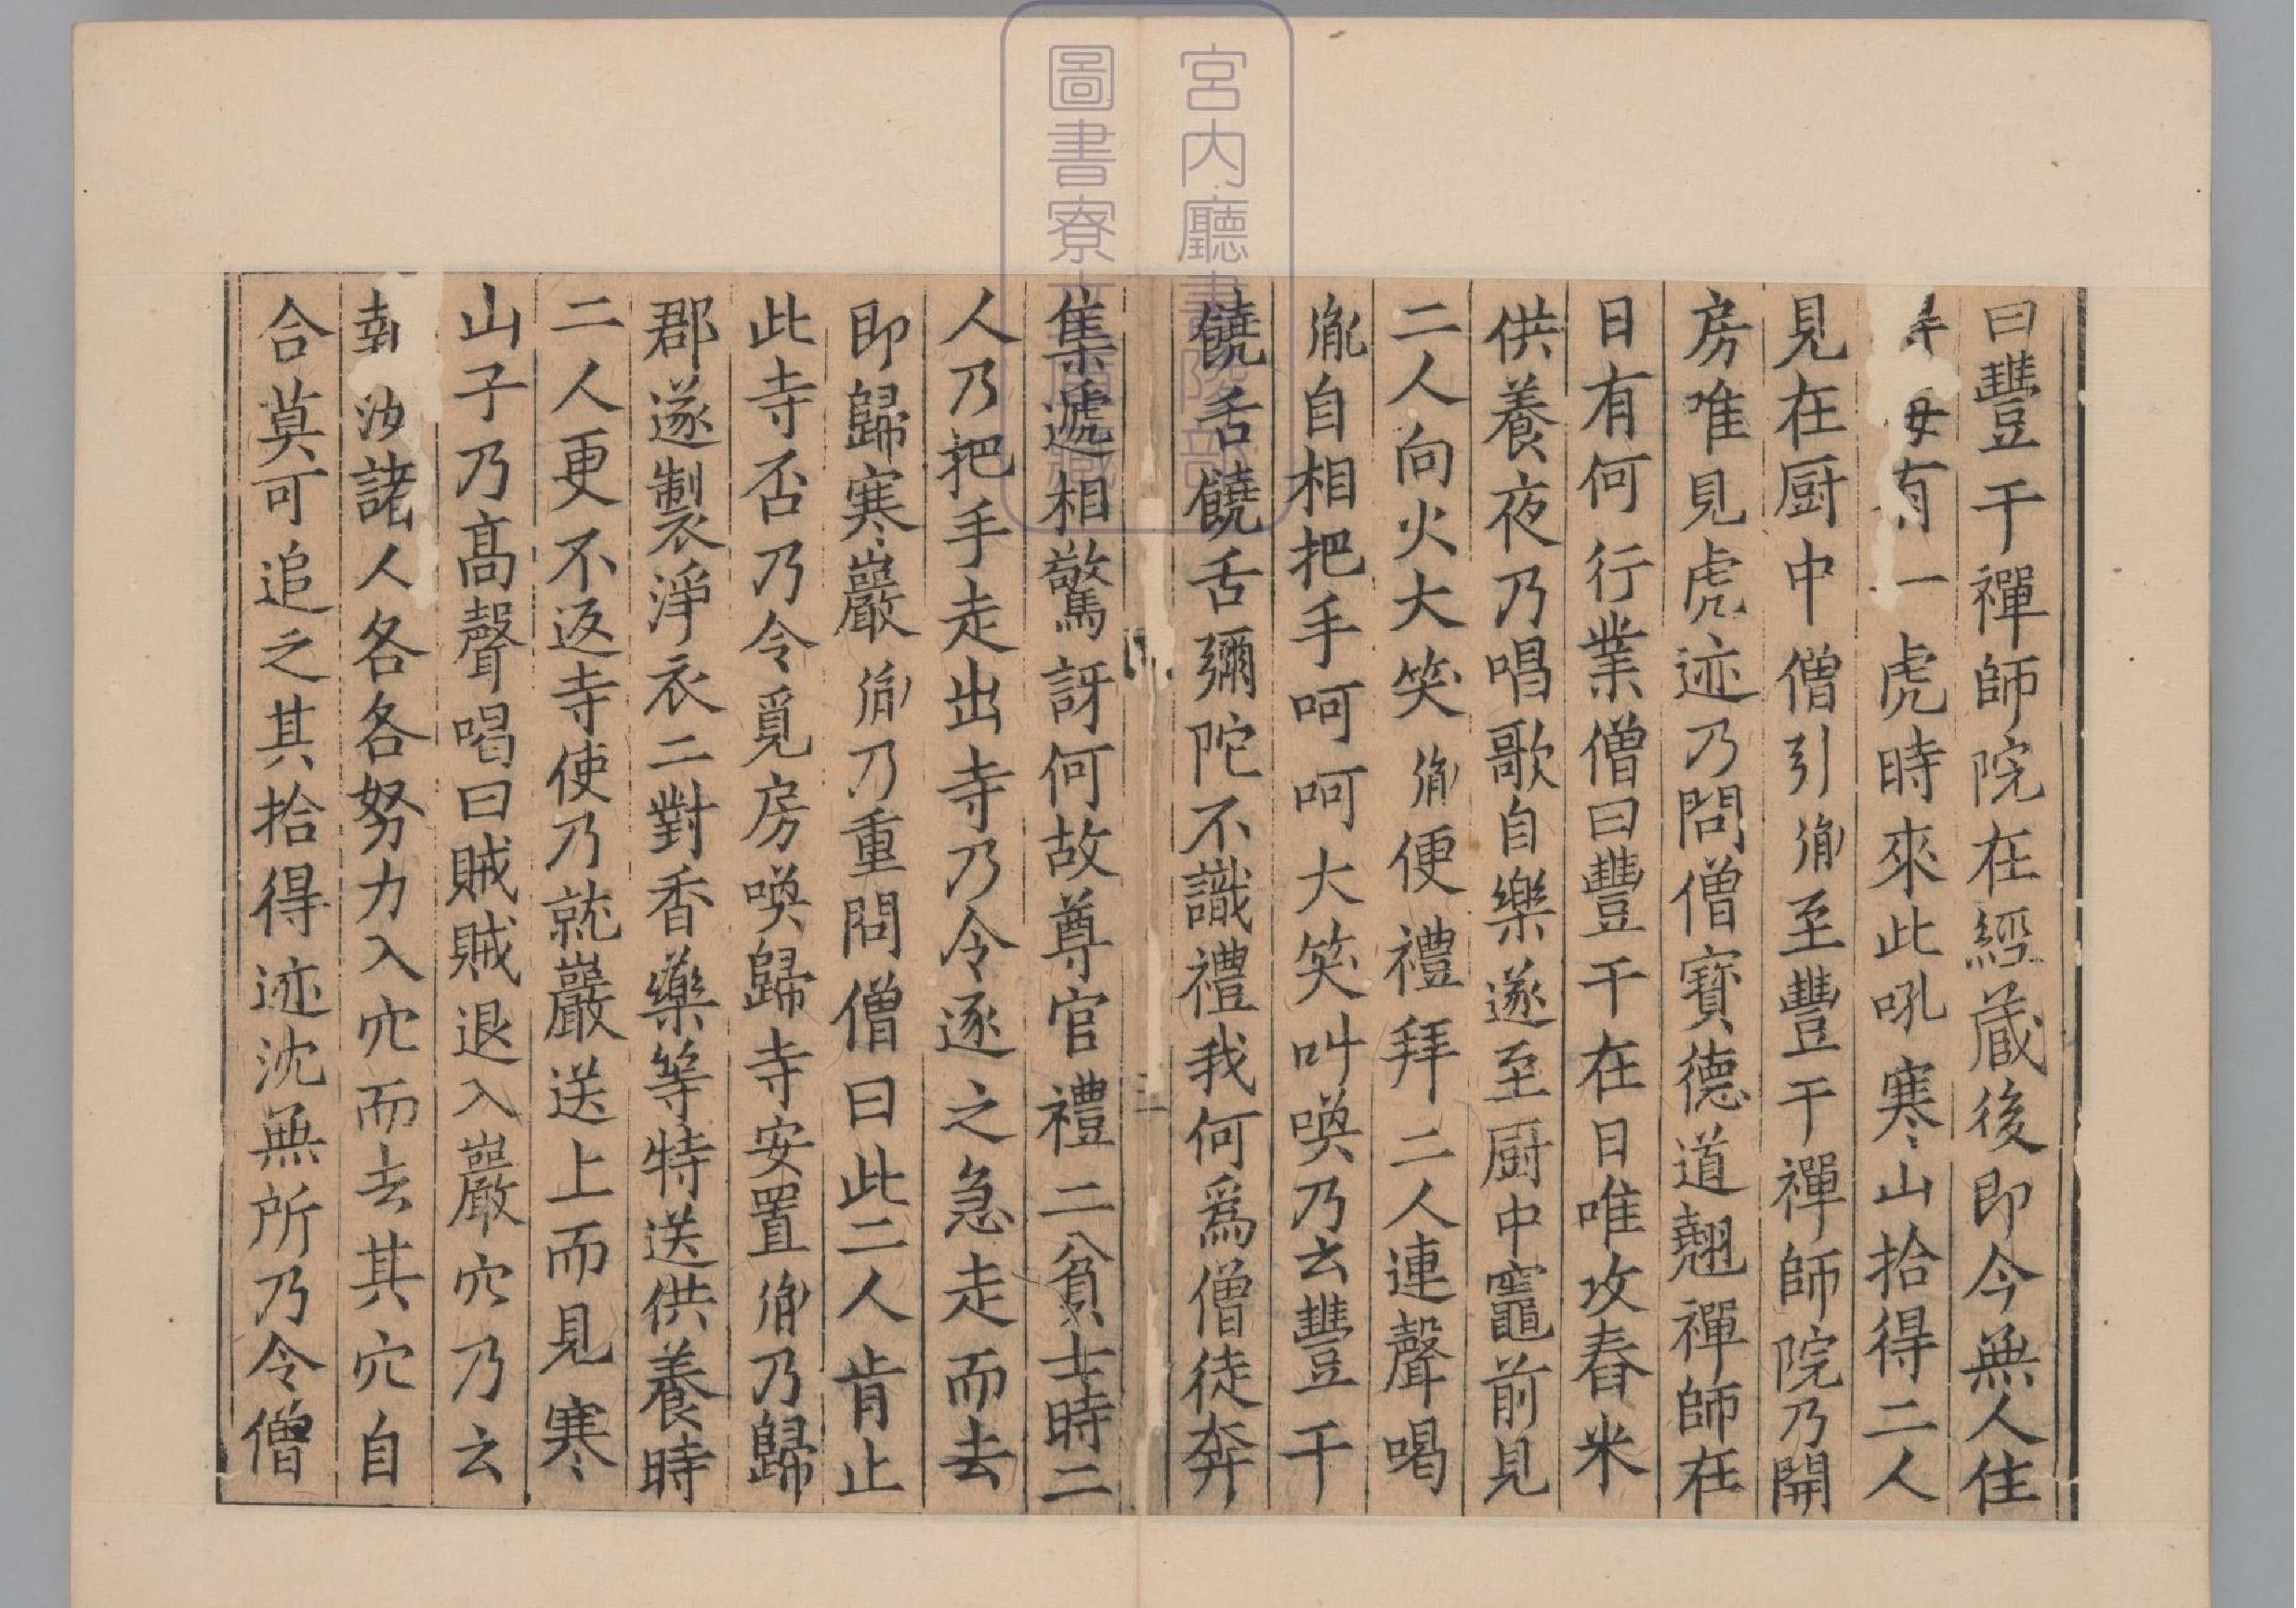 曰豐干禪師院在經藏後即今無人住
有一虎時來此吼寒山拾得二人
見在厨中僧引胤至豐干禪師院乃開
房唯見虎迹乃問僧寶德道翹禪師在
日有何行業僧曰豐干在日唯攻舂米
供養夜乃唱歌自樂遂至厨中竈前見
二人向火大笑胤便禮拜二人連聲喝
胤自相把手呵呵大笑叫喚乃云豐干
饒舌饒舌彌陀不識禮我何爲僧徒奔
集遞相驚訝何故尊官禮二貧士時二
人乃把手走出寺乃令逐之急走而去
即歸寒巖胤乃重問僧曰此二人肯止
此寺否乃令覓房喚歸寺安置胤乃歸
郡遂製淨衣二對香藥等特送供養時
二人更不返寺使乃就巖送上而見寒
山子乃高聲喝曰賊賊退入巖穴乃云
汝諸人各各努力入穴而去其穴自
合莫可追之其拾得迹沈無所乃令僧
宮内廳書陵部
圖書寮